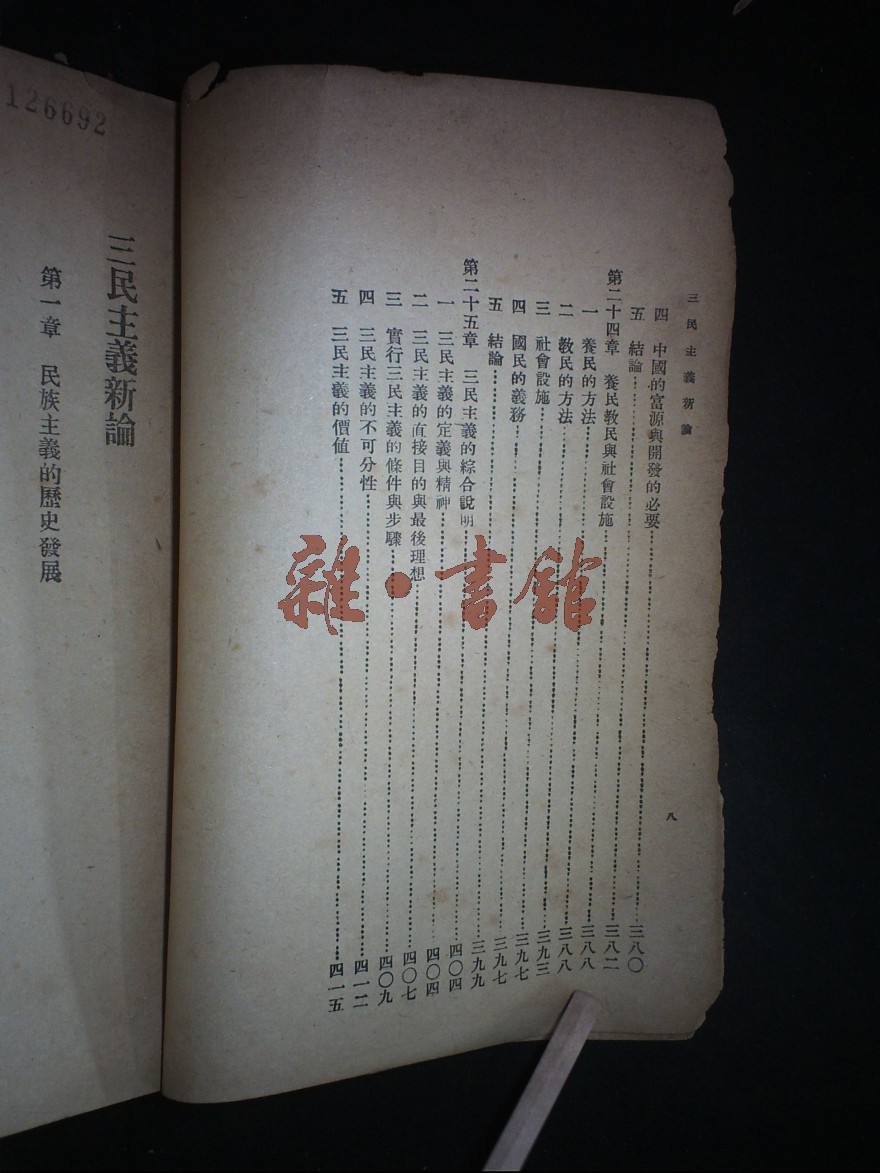 三民主義新論
四 中國的富源與開發的必要……三八〇
五 結論……三八二
第二十四章 養民教民與社會設施……三八八
一 養民的方法……三八八
二 教民的方法……三九三
三 社會設施……三九七
四 國民的義務……三九七
五 結論……三九九
第二十五章 三民主義的綜合說明……四〇四
一 三民主義的定義與精神……四〇四
二 三民主義的直接目的與最後理想……四〇七
三 實行三民主義的條件與步驟……四〇九
四 三民主義的不可分性……四一二
五 三民主義的價值……四一五
八
雜·書館
126692
三民主義新論
第一章 民族主義的歷史發展